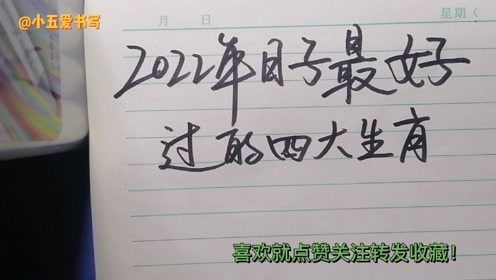 @小五爱书写
月 日 星期（
2022年日子最好
过的四大生肖
喜欢就点赞关注转发收藏！